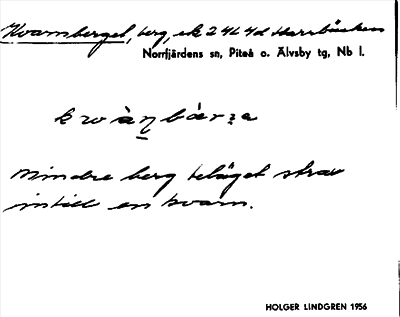 Kvarnberget, berg, ek 2464d Harrbäcken
Norrfjärdens sn, Piteå o. Älvsby tg, Nb l.
Mindre berg beläget strax
intill en kvarn.
HOLGER LINDGREN 1956